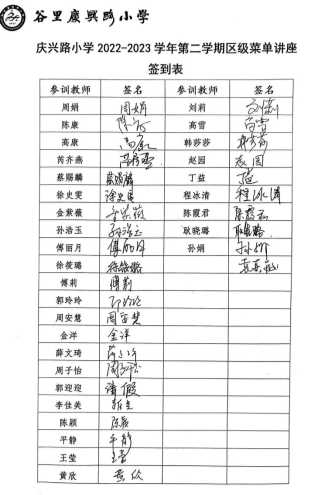 谷里庆兴路小学
庆兴路小学 2022-2023 学年第二学期区级菜单讲座
签到表
参训教师 签名 参训教师 签名
周娟 周娟 刘莉
陈康 高雪 高雪
高康 高康 韩莎莎 韩莎莎
芮齐燕 赵园
蔡赐麟 蔡赐麟 丁益 丁益
徐史雯 程冰清 程冰清
金紫薇 金紫薇 陈霞君
孙浩玉 孙浩玉 耿晓璐 耿晓璐
傅丽月 傅丽月 孙娟 孙娟
徐筱璐 徐筱璐
傅莉 傅莉
郭玲玲 郭玲玲
周安慧 周安慧
金洋 金洋
薛文琦
周子怡 周子怡
郭迎迎 请假
李佳美
陈颖 陈颖
平静 平静
王莹 王莹
黄欣 黄欣